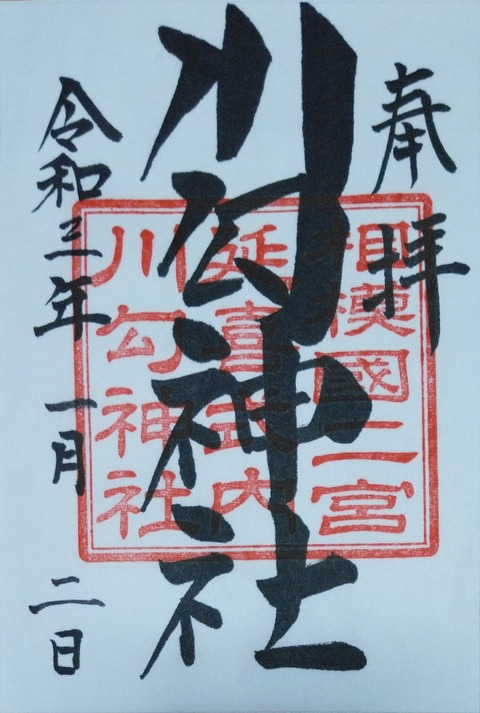 奉拝
川勾神社
相模國二宮
延喜式内
川勾神社
令和三年一月二日